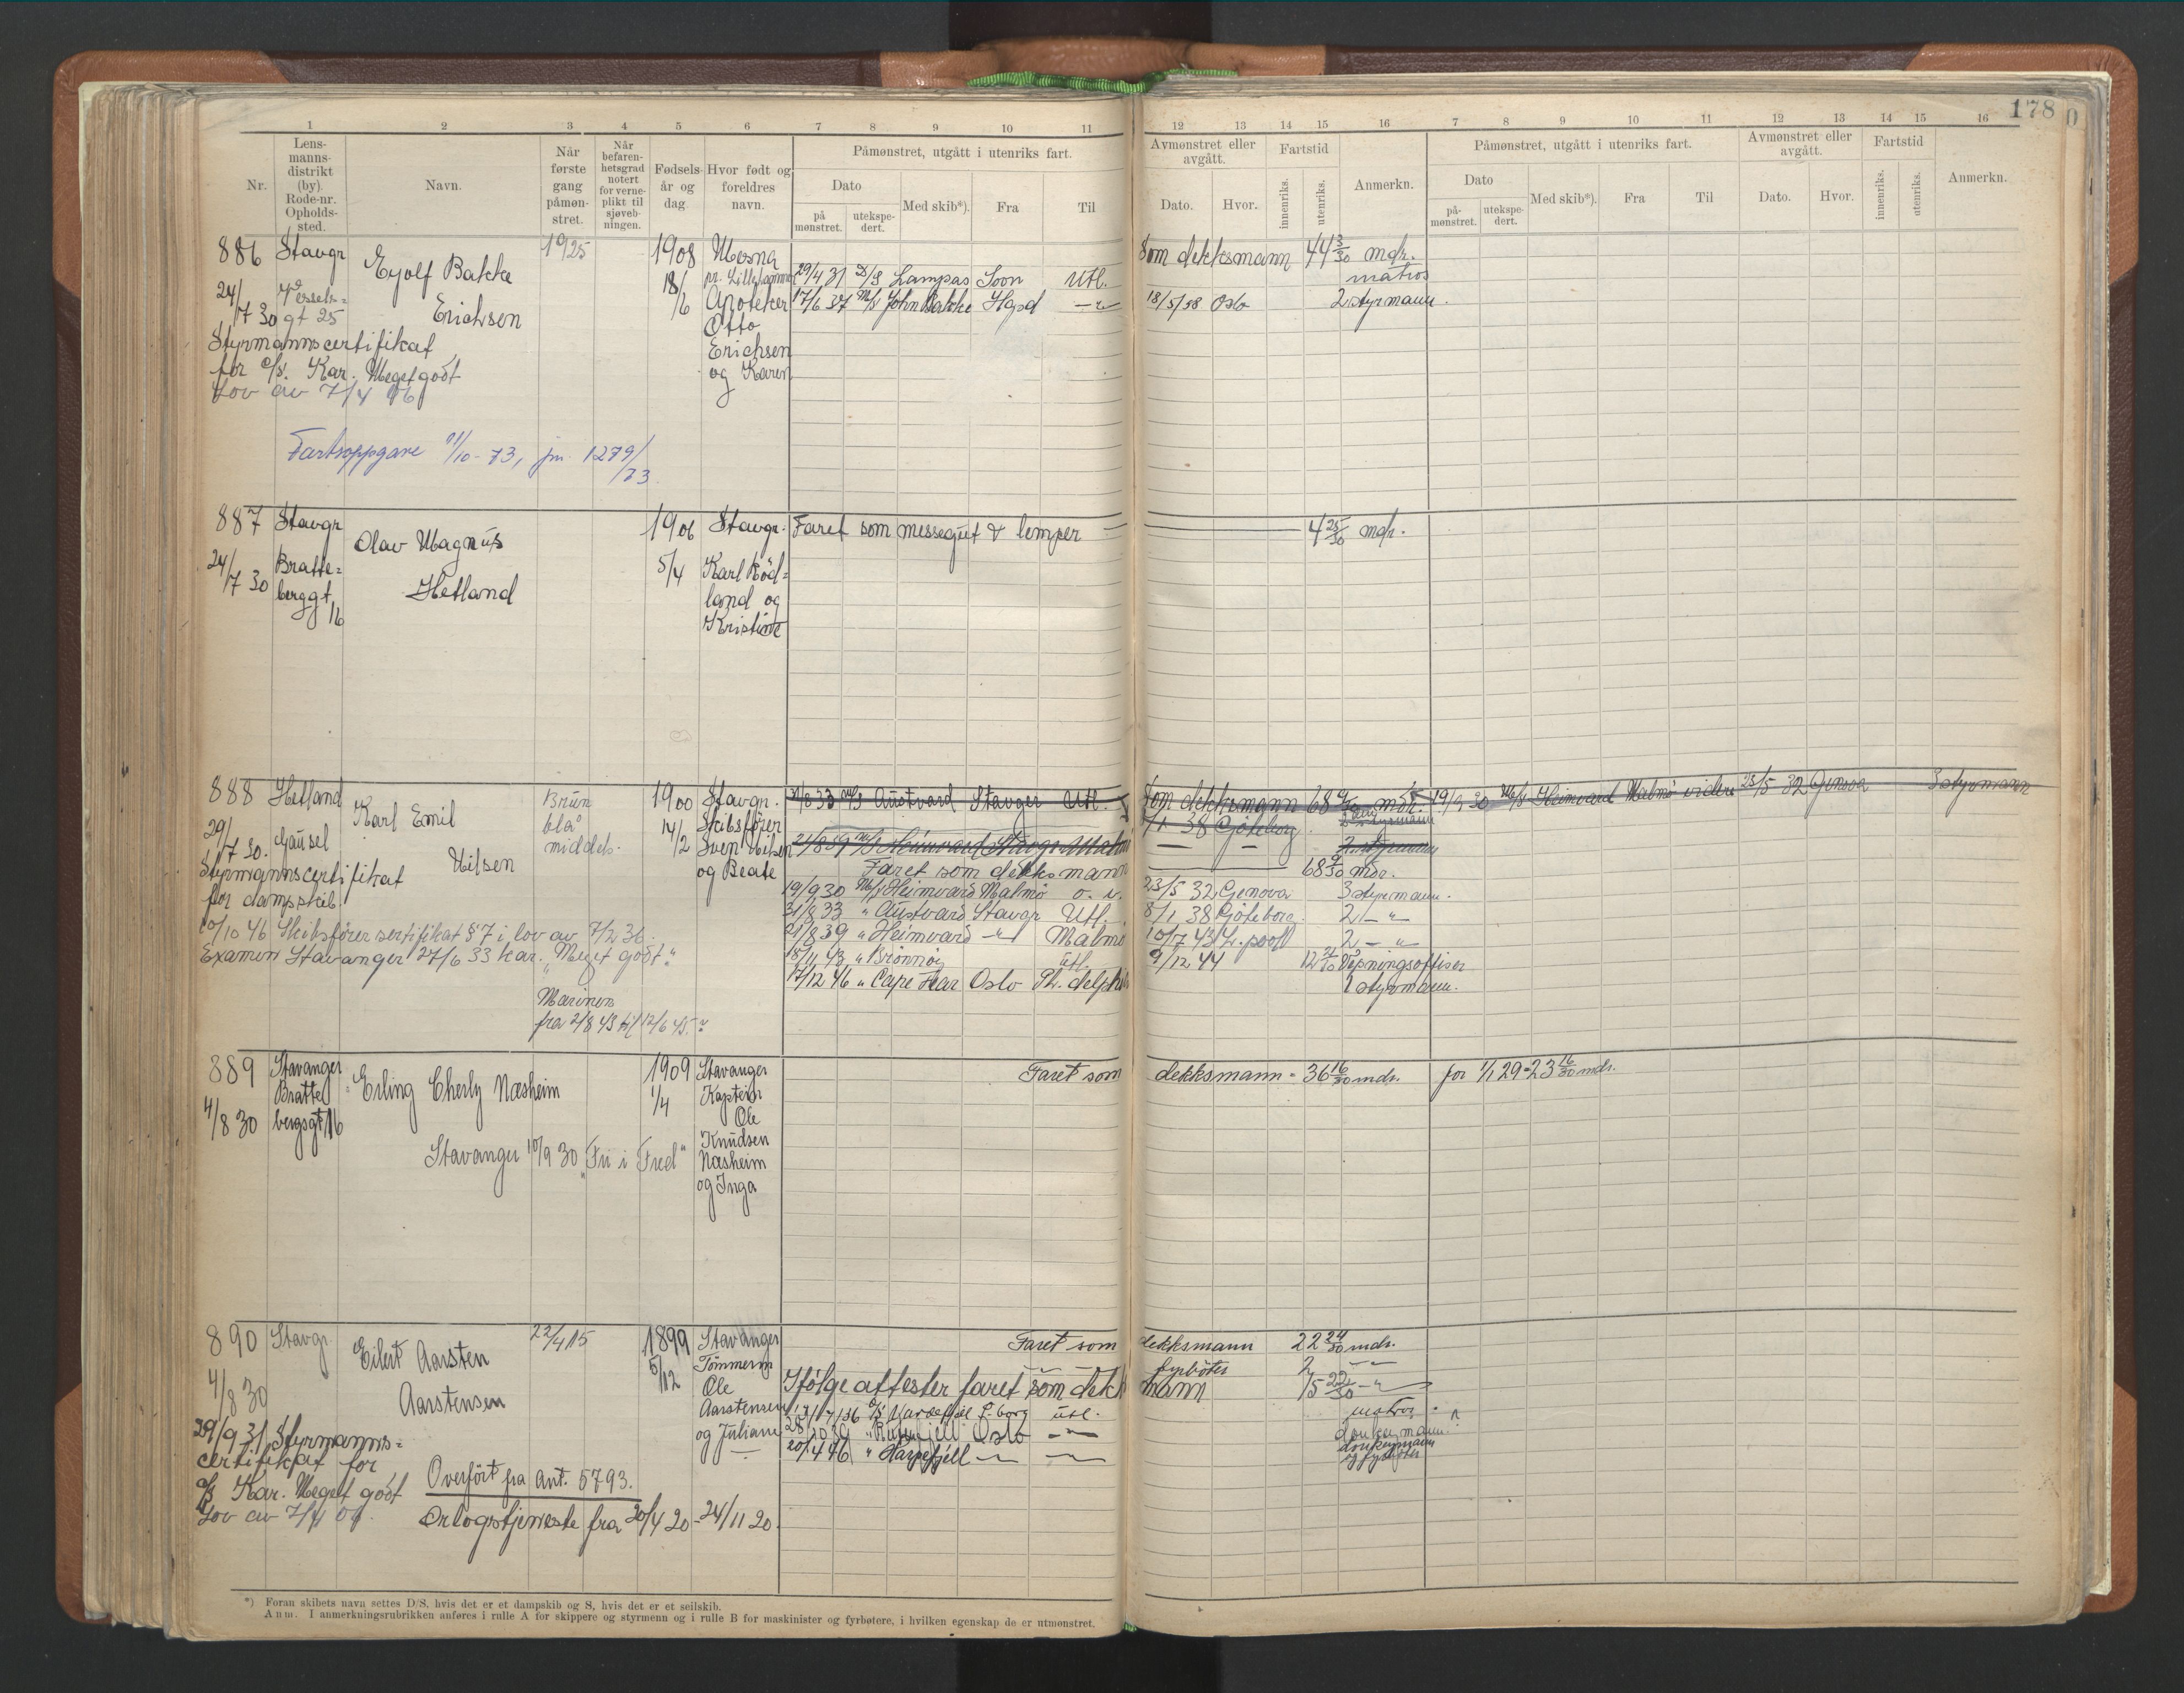 178
1 2 3 4 5 6 7 8 9 10 11 12 13 14 15 16 7 8 9 10 11 12 13 14 15 16
Nr.
Lens-
manns-
distrikt
(by).
Rode-nr.
Opholds-
sted.
Navn.
Når
første
gang
påmøn-
stret.
Når
befaren-
hetsgrad
notert
for verne-
plikt til
sjøveb-
ningen.
Fødsels-
år og
dag.
Hvor født og
foreldres
navn.
Påmønstret, utgått i utenriks fart.
Dato
på
mønstret.
utekspe-
dert.
Med skib*).
Fra
Til
Avmønstret eller
avgått.
Dato.
Hvor.
Fartstid
innenriks.
utenriks.
Anmerkn.
Påmønstret, utgått i utenriks fart.
Dato
på-
mønstret.
utekspe-
dert.
Med skib*).
Fra
Til
Avmønstret eller
avgått.
Dato.
Hvor.
Fartstid
innenriks.
utenriks.
Anmerkn.
886 Stavgr. Eyolf Bakke 1925 1908 Mesna Som dekksmann 44 3/30 mdr.
24/7 30 gt 25 Erichsen 18/6 pr. Lillehammer 29/4 31 D/S Lampas Soon Utl. matros
Apoteker 17/6 37 M/S John Bakke Hgsd —"— 18/5/38 Oslo 2 styrmann.
Otto
Erichsen
og Karen
Styrmannscertifikat
for D/S. Kar. Meget godt
Lov av 7/4 06
Fartsoppgave 11/10-73, jnr. 1279/73.
887 Stavgr. Olav Magnus 1906 Stavgr. Faret som messegut & lemper — 4 25/30 mdr.
24/7 30 Bratte=
berggt. 16
Hetland 5/4 Karl Rød=
land og
Kristine
888 Hetland Karl Emil Brun 1900 Stavgr. 31/8 33 M/S Austvard Stavger Utl. Som dekksmann 68 9/30 mdr. 19/9 30 M/S Heimvard Malmø videre 23/5 32 Genova 3 styrmann
29/7 30. Gausel blå 14/2 Skibsfører 8/1 38 Göteborg 2 styrmann
middels. Sven Nilsen 21/8 39 M/S Heimvard Stavgr Malmö — — 2 styrmann
Nilsen og Beate Faret som dekksmann — 68 9/30 mdr.
Styrmannscertifikat
for dampskib.
19/9 30 M/S Heimvard Malmø o. v. 23/5 32 Genova 3 styrmann.
31/8 33 " Austvard Stavgr Utl. 8/1 38 Göteborg. 2 — "
21/8 39 " Heimvard —"— Malmö 10/7 43 L.pool 2 — "
18/11 43 " Brønnøy utl. 9/12 44 12 21/30 Våpningsoffiser
17/12 46 " Cape Hear Oslo Ph. delphia 1 styrmann.
10/10 46 Skibsfører sertifikat §7 i lov av 7/2 36.
Examen Stavanger 27/6 33 kar. "Meget godt."
Marinen
fra 2/8 43 til 12/6 45.
889 Stavanger Erling Cherly Næsheim 1909 Stavanger Faret som dekksmann - 36 16/30 mdr. for 1/1 29 - 23 16/30 mdr.
4/8 30 Bratte
bergsgt 16
1/4 Kaptein
Ole
Knudsen
Næsheim
og Inga
Stavanger 10/9 30 "Fri i Fred"
890 Stavgr. Eilert Aarsten 22/4 15 1899 Stavanger Faret som dekksmann 22 24/30 mdr.
4/8 30 Aarstensen 5/12 Tømmerm. fyrbøter 2 —"—
Ole Ifølge attester faret som dekk mann 15 22/30 -"
Aarstensen 17/7/36 utl. matros.
og Juliane Oslo —"— donkeymann
20/4 46 " Harpefjell —"— —"— donkeymann
og fyrbøter
29/9 31 Styrmanns=
certifikat for
D/S Kar. Meget godt
Lov av 7/4 06.
Overført fra Ant. 5793.
Orlogstjeneste fra 20/4 20 - 24/11 20.
*) Foran skibets navn settes D/S, hvis det er et dampskib og S, hvis det er et seilskib.
Anm. I anmerkningsrubrikken anføres i rulle A for skippere og styrmenn og i rulle B for maskinister og fyrbøtere, i hvilken egenskap de er utmønstret.